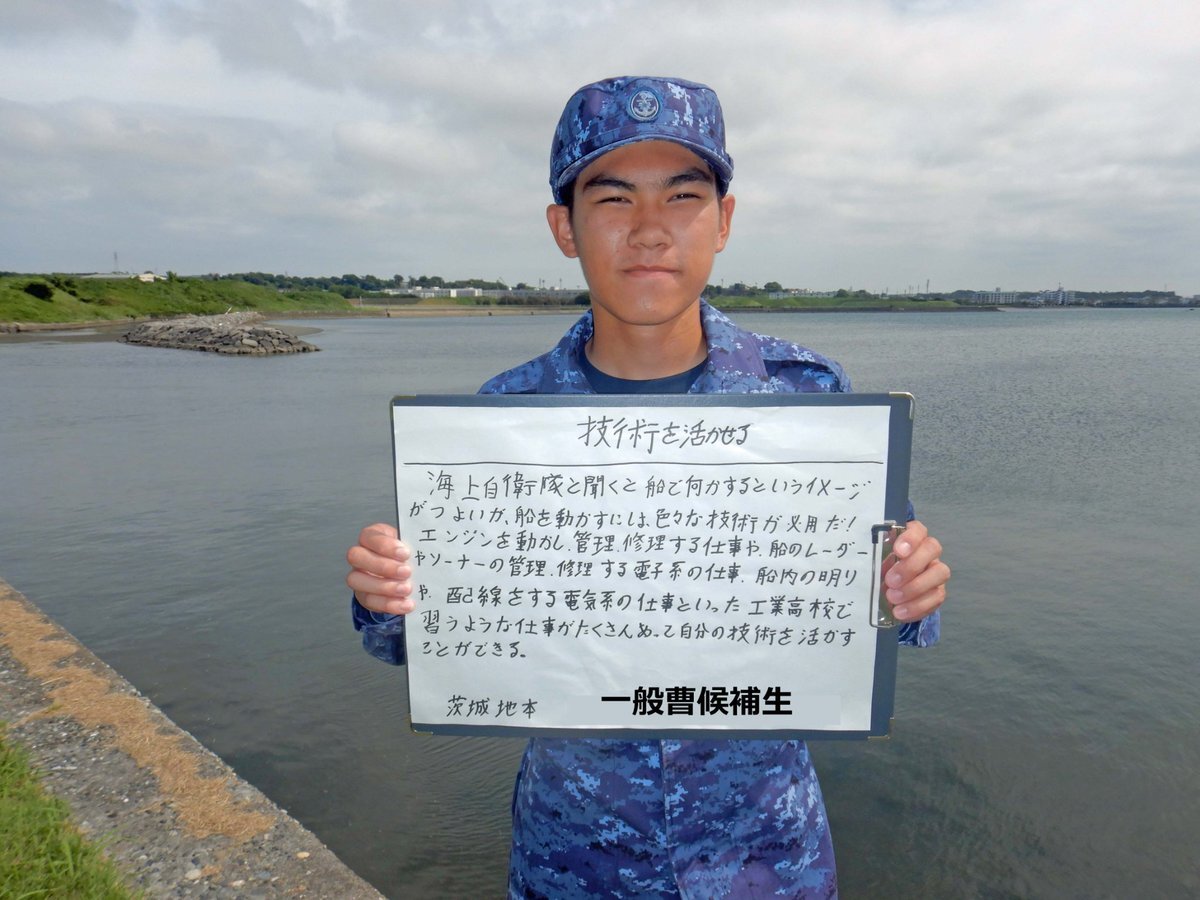 技術を活かせる
海上自衛隊と聞くと船で何かするというイメージ
がつよいが、船を動かすには、色々な技術が必用だ!
エンジンを動かし、管理、修理する仕事や、船のレーダー
やソーナーの管理、修理する電子系の仕事、船内の明り
や、配線をする電気系の仕事といった工業高校で
習うような仕事がたくさんあって自分の技術を活かす
ことができる。
茨城地本 一般曹候補生